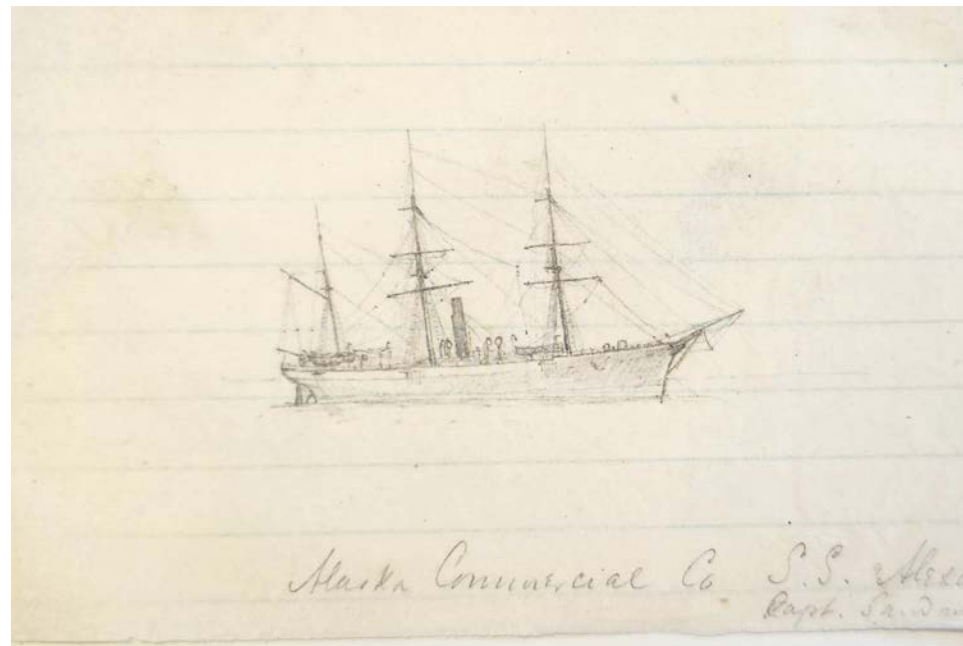 Alaska Commercial Co S.S.
Capt.